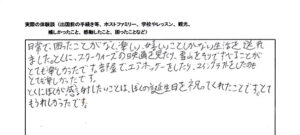 実際の体験談（出国前の手続き等、ホストファミリー、学校やレッスン、観光、
嬉しかったこと、感動したこと、困ったことなど）
日常で、困ったことがなく、楽しい、嬉しいことしかない生活を送れ
ました。とくに、スターウォーズの映画を見たり、雪山をすべったりすることが
とても楽しかったです。部屋で、エアホッケーをしたり、スイッチをしたのも
とても楽しかったです。
とくにぼくが感謝したいことは、ぼくの誕生日を祝ってくれたことです。とて
もうれしかったです。